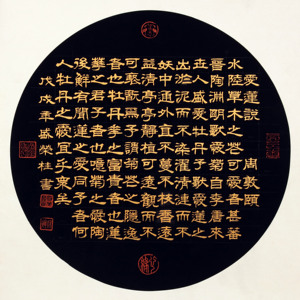 愛蓮說 周敦頤
水陸草木之花可愛者甚蕃
晉陶淵明獨愛菊自李唐來
世人盛愛牡丹予獨愛蓮之
出淤泥而不染濯清漣而不
妖中通外直不蔓不枝香遠
益清亭亭靜植可遠觀而不
可褻翫焉予謂菊花之隱逸
者也牡丹花之富貴者也蓮
花之君子者也噫菊之愛陶
後鮮有聞蓮之愛同予者何
人牡丹之愛宜乎眾矣
戊戌年盛榮柱書